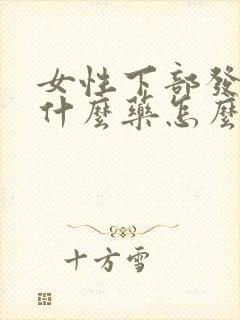 女性下部發
什麼藥怎麼
十方雪